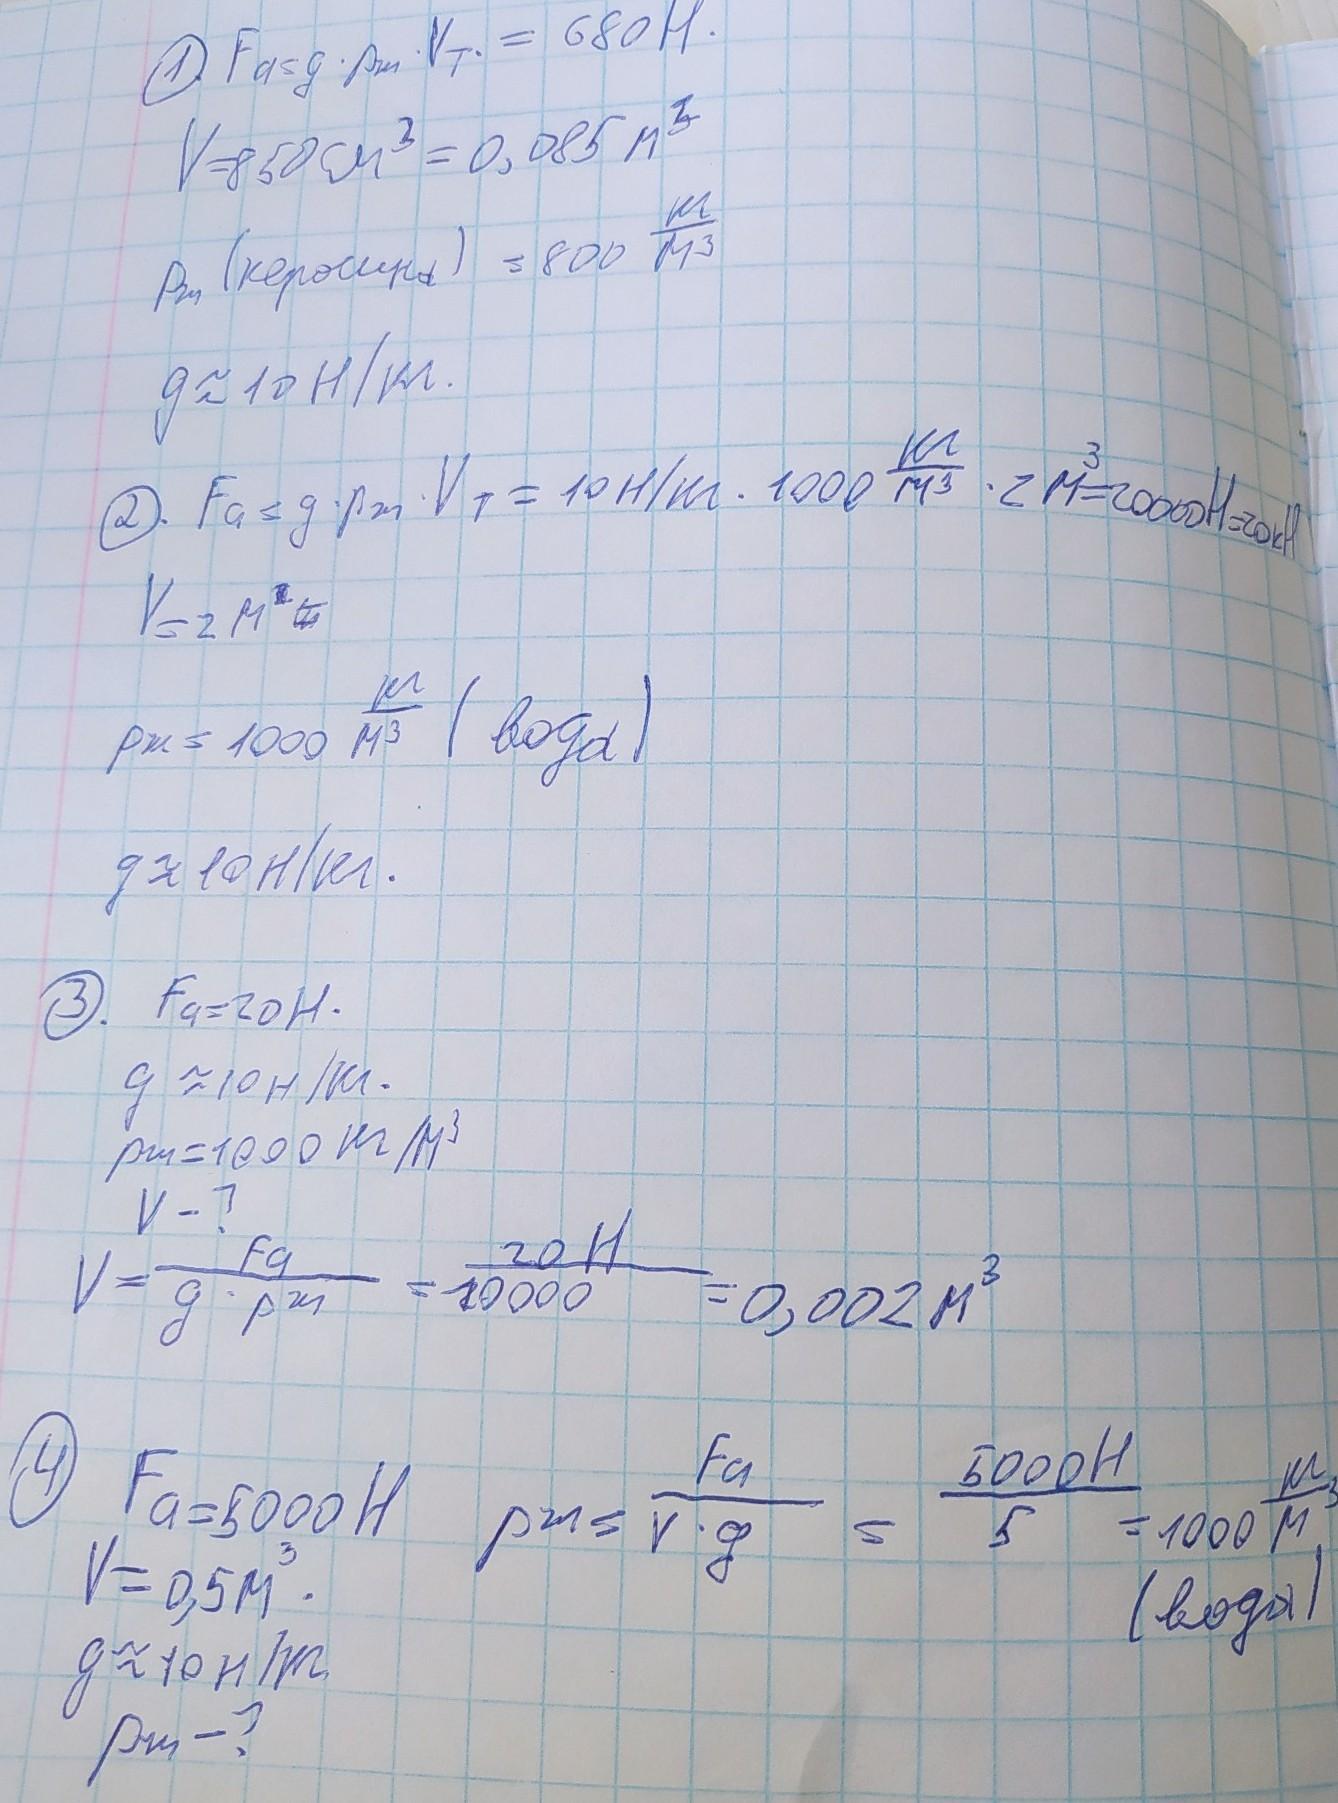 ① Fа=g·ρж·Vт.=680Н.
V=850см³=0,085м³
ρж (керосина) =800 кг/м³
g≈10Н/кг.
②. Fа=g·ρж·Vт=10Н/кг·1000 кг/м³·2м³=20000Н=20кН
V=2м
ρж=1000 кг/м³ (вода)
g≈10Н/кг.
③. Fа=20Н.
g≈10Н/кг.
ρж=1000кг/м³
V-?
V=Fа/g·ρж=20Н/10000=0,002м³
④ Fа=5000Н ρж=Fа/V·g=5000Н/5=1000 кг/м³
V=0,5м³. (вода)
g≈10Н/кг
ρж-?